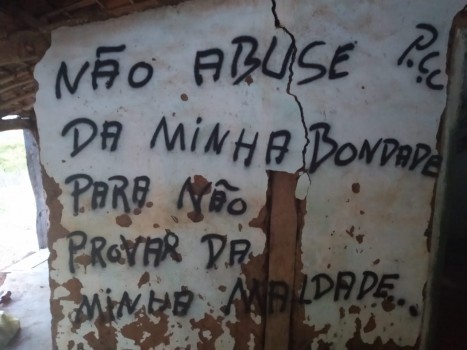 NÃO ABUSE P.C.C
DA MINHA BONDADE
PARA NÃO
PROVAR DA
MINHA MALDADE...